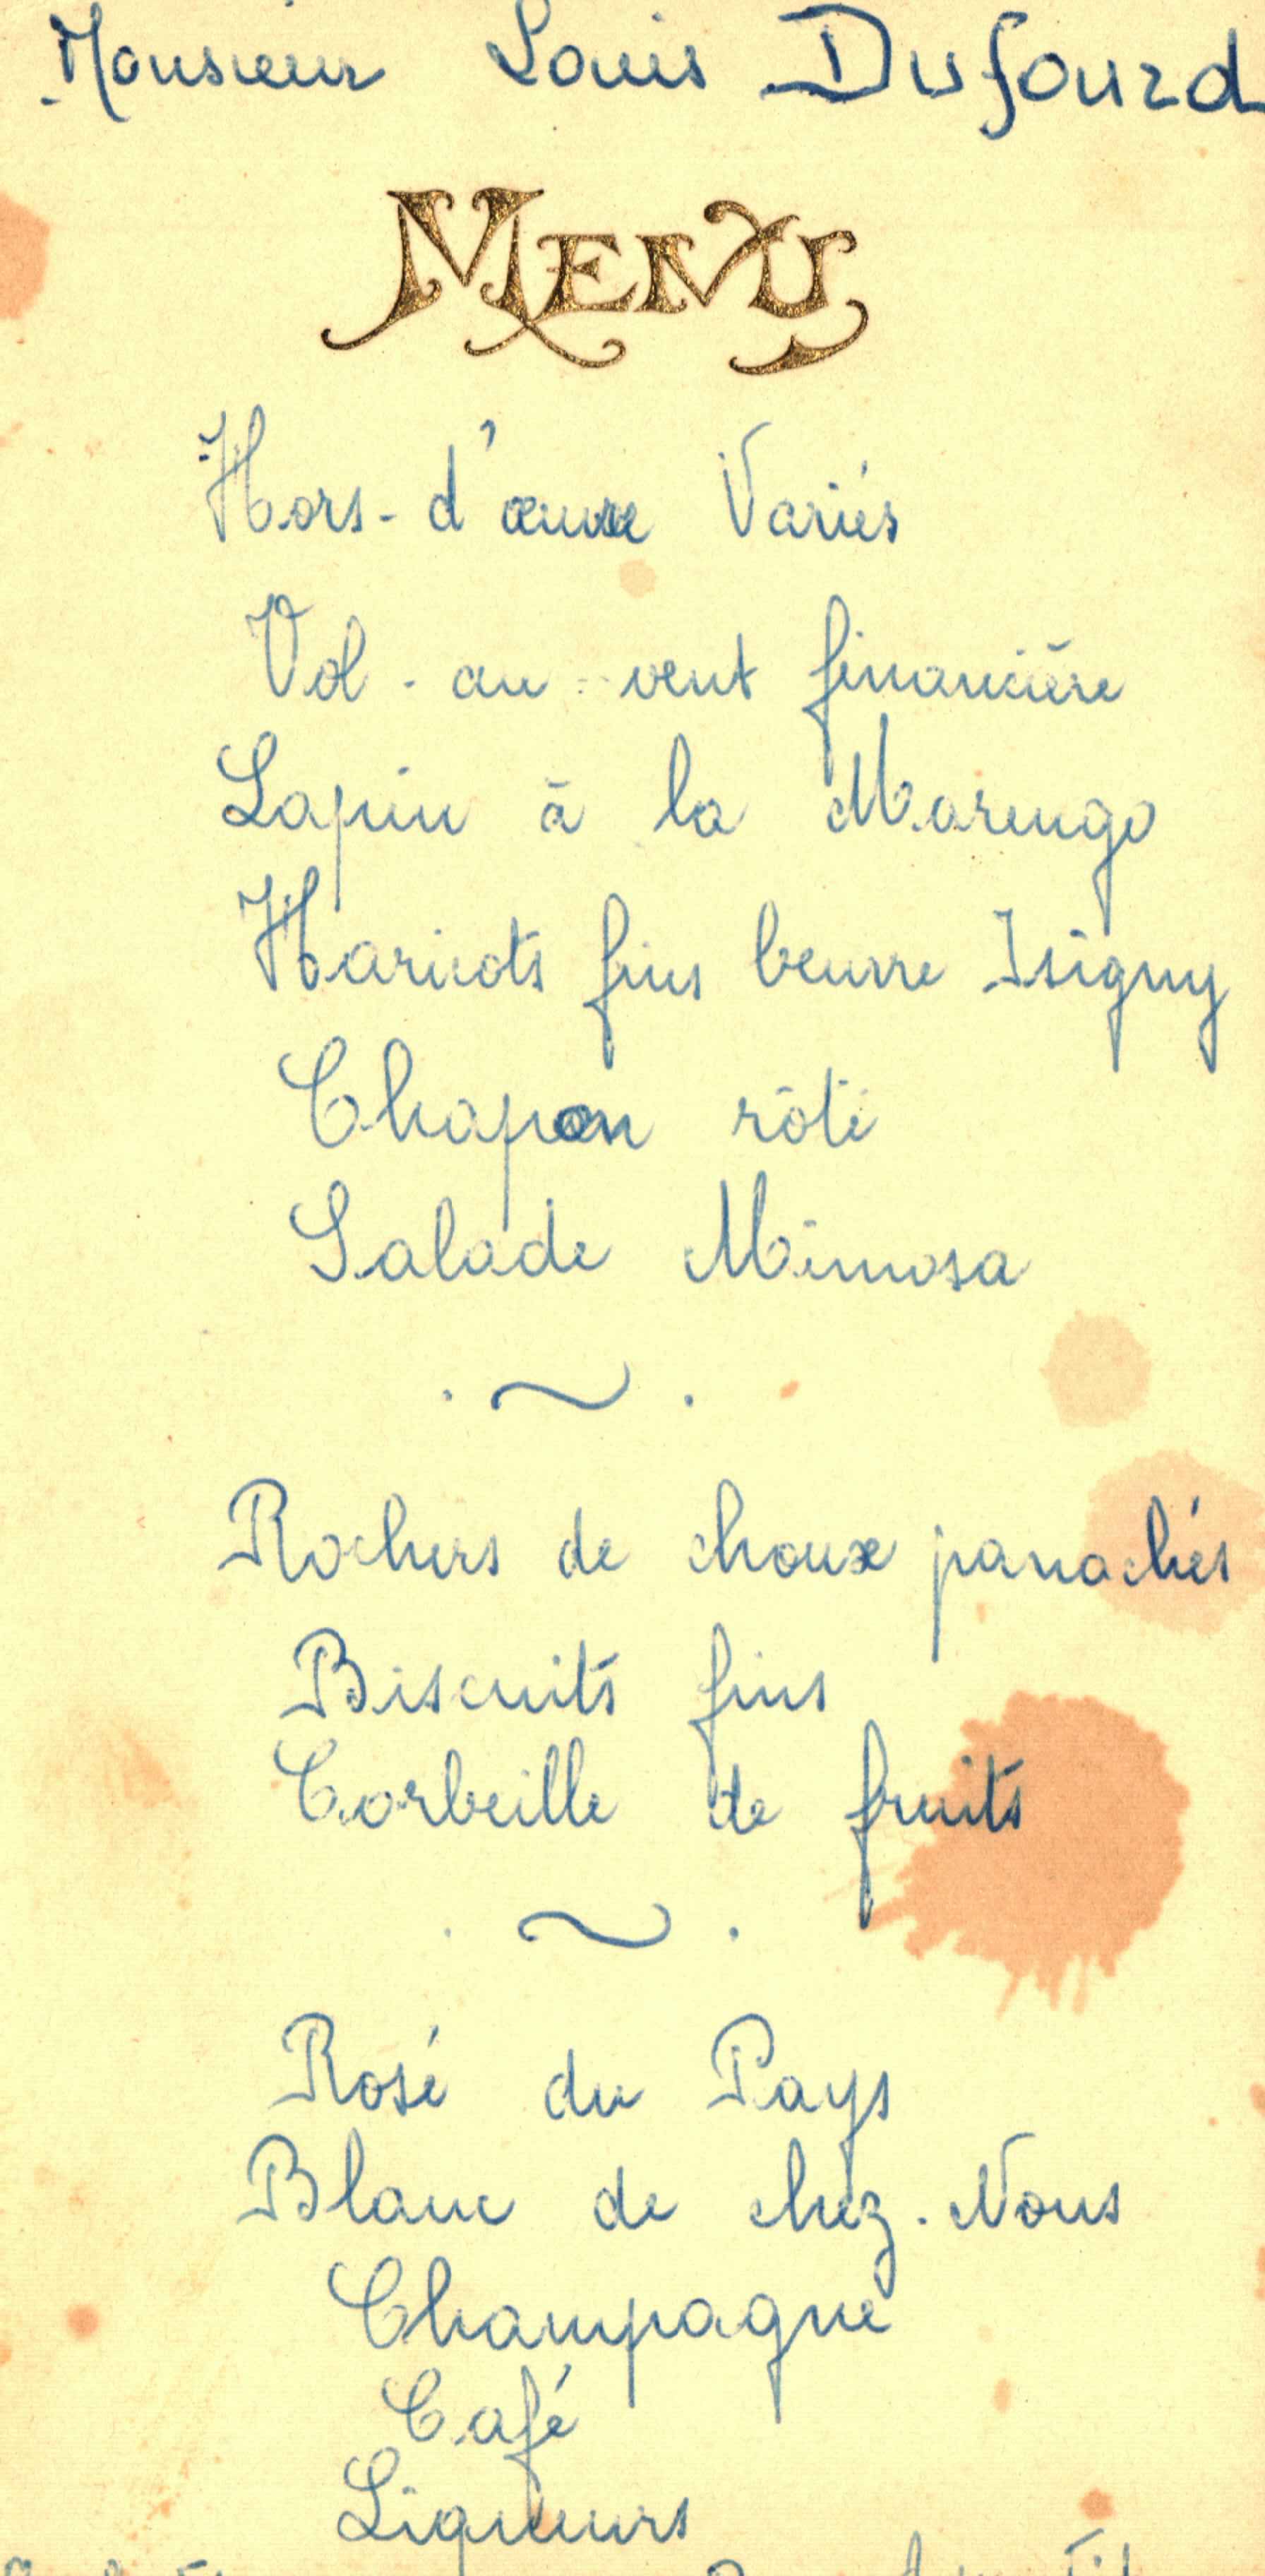 Monsieur Louis Dufourd
MENU
Hors-d'œuvre Variés
Vol-au-vent financière
Lapin à la Marengo
Haricots fins beurre Isigny
Chapon rôti
Salade Mimosa
. ~ .
Rochers de choux panachés
Biscuits fins
Corbeille de fruits
. ~ .
Rosé du Pays
Blanc de chez-Nous
Champagne
Café
Liqueurs